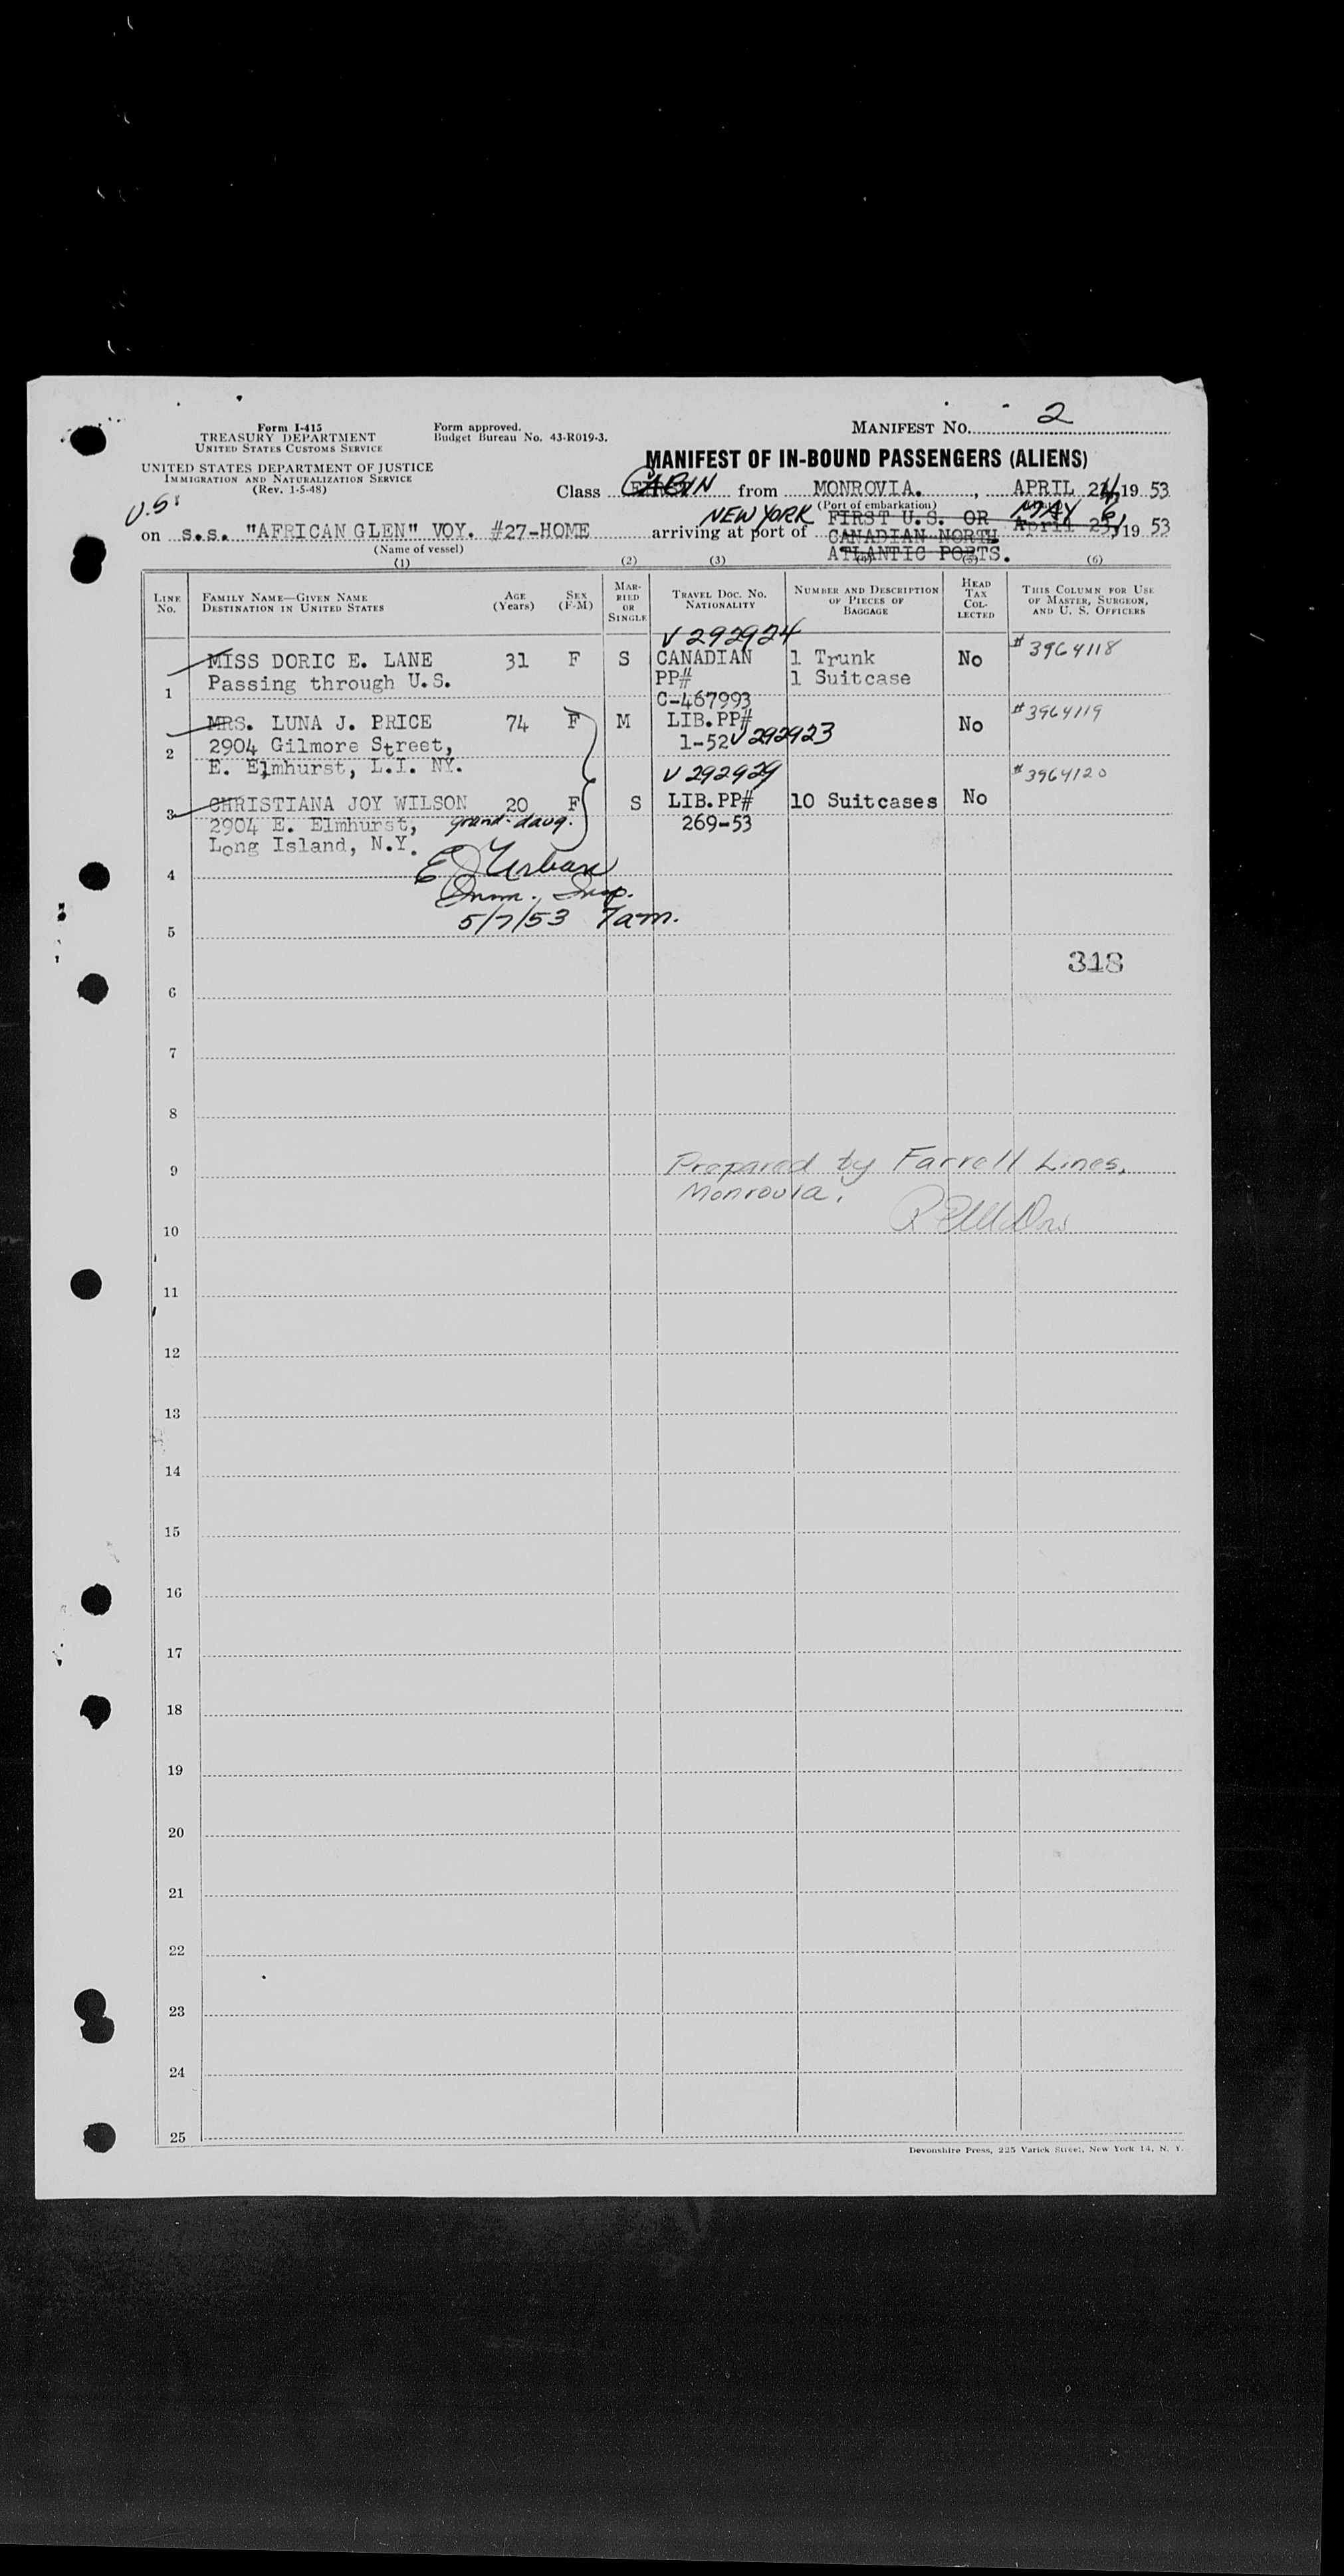 Form I-415
TREASURY DEPARTMENT
UNITED STATES CUSTOMS SERVICE
UNITED STATES DEPARTMENT OF JUSTICE
IMMIGRATION AND NATURALIZATION SERVICE
(Rev. 1-5-48)
Form approved.
Budget Bureau No. 43-R019-3.
MANIFEST NO. 2
MANIFEST OF IN-BOUND PASSENGERS (ALIENS)
Class CABIN from MONROVIA. , APRIL 24, 19 53
(Port of embarkation)
U.S.
on s.s. "AFRICAN GLEN" VOY. #27-HOME arriving at port of NEW YORK FIRST U.S. OR CANADIAN NORTH ATLANTIC PORTS. MAY 6, April 19 53
(Name of vessel)
(1) (2) (3) (4) (5) (6)
LINE No. FAMILY NAME—GIVEN NAME DESTINATION IN UNITED STATES AGE (Years) SEX (F-M) MARRIED OR SINGLE TRAVEL DOC. NO. NATIONALITY NUMBER AND DESCRIPTION OF PIECES OF BAGGAGE HEAD TAX COLLECTED THIS COLUMN FOR USE OF MASTER, SURGEON, AND U. S. OFFICERS
V 292924 #3964118
MISS DORIC E. LANE 31 F S CANADIAN 1 Trunk No
1 Passing through U.S. PP# 1 Suitcase
C-467993 #3964119
MRS. LUNA J. PRICE 74 F M LIB.PP# No
2 2904 Gilmore Street, 1-52 V 292923
E. Elmhurst, L.I. NY. V 292929 #3964120
3 CHRISTIANA JOY WILSON 20 F S LIB.PP# 10 Suitcases No
2904 E. Elmhurst, grand-daug. 269-53
Long Island, N.Y.
4 E Urban
Imm. Insp.
5 5/7/53 7am.
318
6
7
8
9 Prepared by Farrell Lines,
Monrovia.
10
11
12
13
14
15
16
17
18
19
20
21
22
23
24
25
Devonshire Press, 225 Varick Street, New York 14, N. Y.